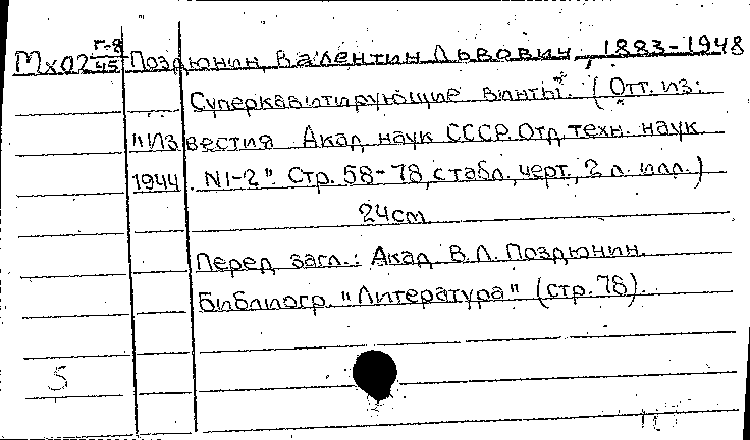 Мх02 г-8/45 Поздюнин, Валентин Львович, 1883-1948
Суперкавитирующие винты. (Отт. из:
"Известия Акад. наук СССР. Отд. техн. наук.
1944. N1-2". Стр. 58-78, с табл., черт., 2 л. илл.)
24см
Перед загл.: Акад. В.Л. Поздюнин.
Библиогр. "Литература" (стр. 78).
5